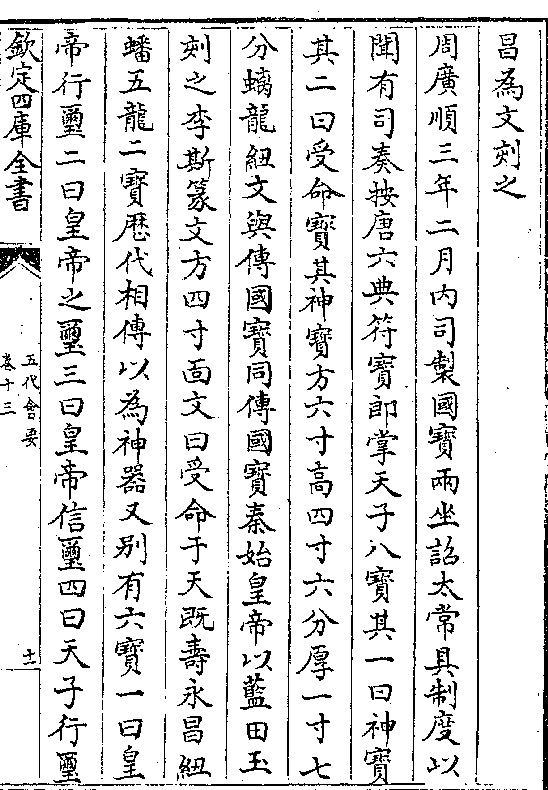 昌為文刻之
周廣順三年二月内司製國寶兩坐詔太常具制度以
聞有司奏按唐六典符寶郎掌天子八寶其一曰神寶
其二曰受命寶其神寶方六寸高四寸六分厚一寸七
分螭龍紐文與傳國寶同傳國寶秦始皇帝以藍田玉
刻之李斯篆文方四寸面文曰受命于天既壽永昌紐
蟠五龍二寶歴代相傳以為神器又别有六寶一曰皇
帝行璽二曰皇帝之璽三曰皇帝信璽四曰天子行璽
欽定四庫全書
五代會要
卷十三
十一